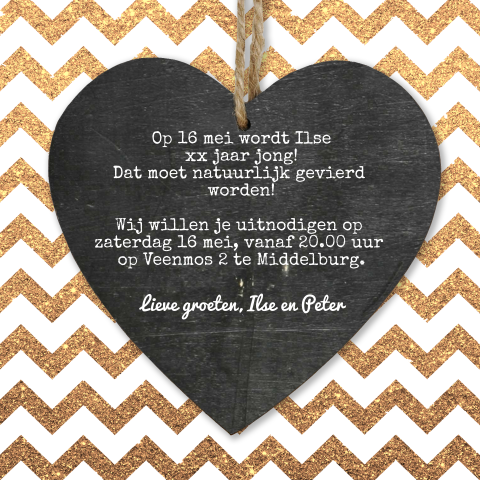 Op 16 mei wordt Ilse
xx jaar jong!
Dat moet natuurlijk gevierd
worden!
Wij willen je uitnodigen op
zaterdag 16 mei, vanaf 20.00 uur
op Veenmos 2 te Middelburg.
Lieve groeten, Ilse en Peter